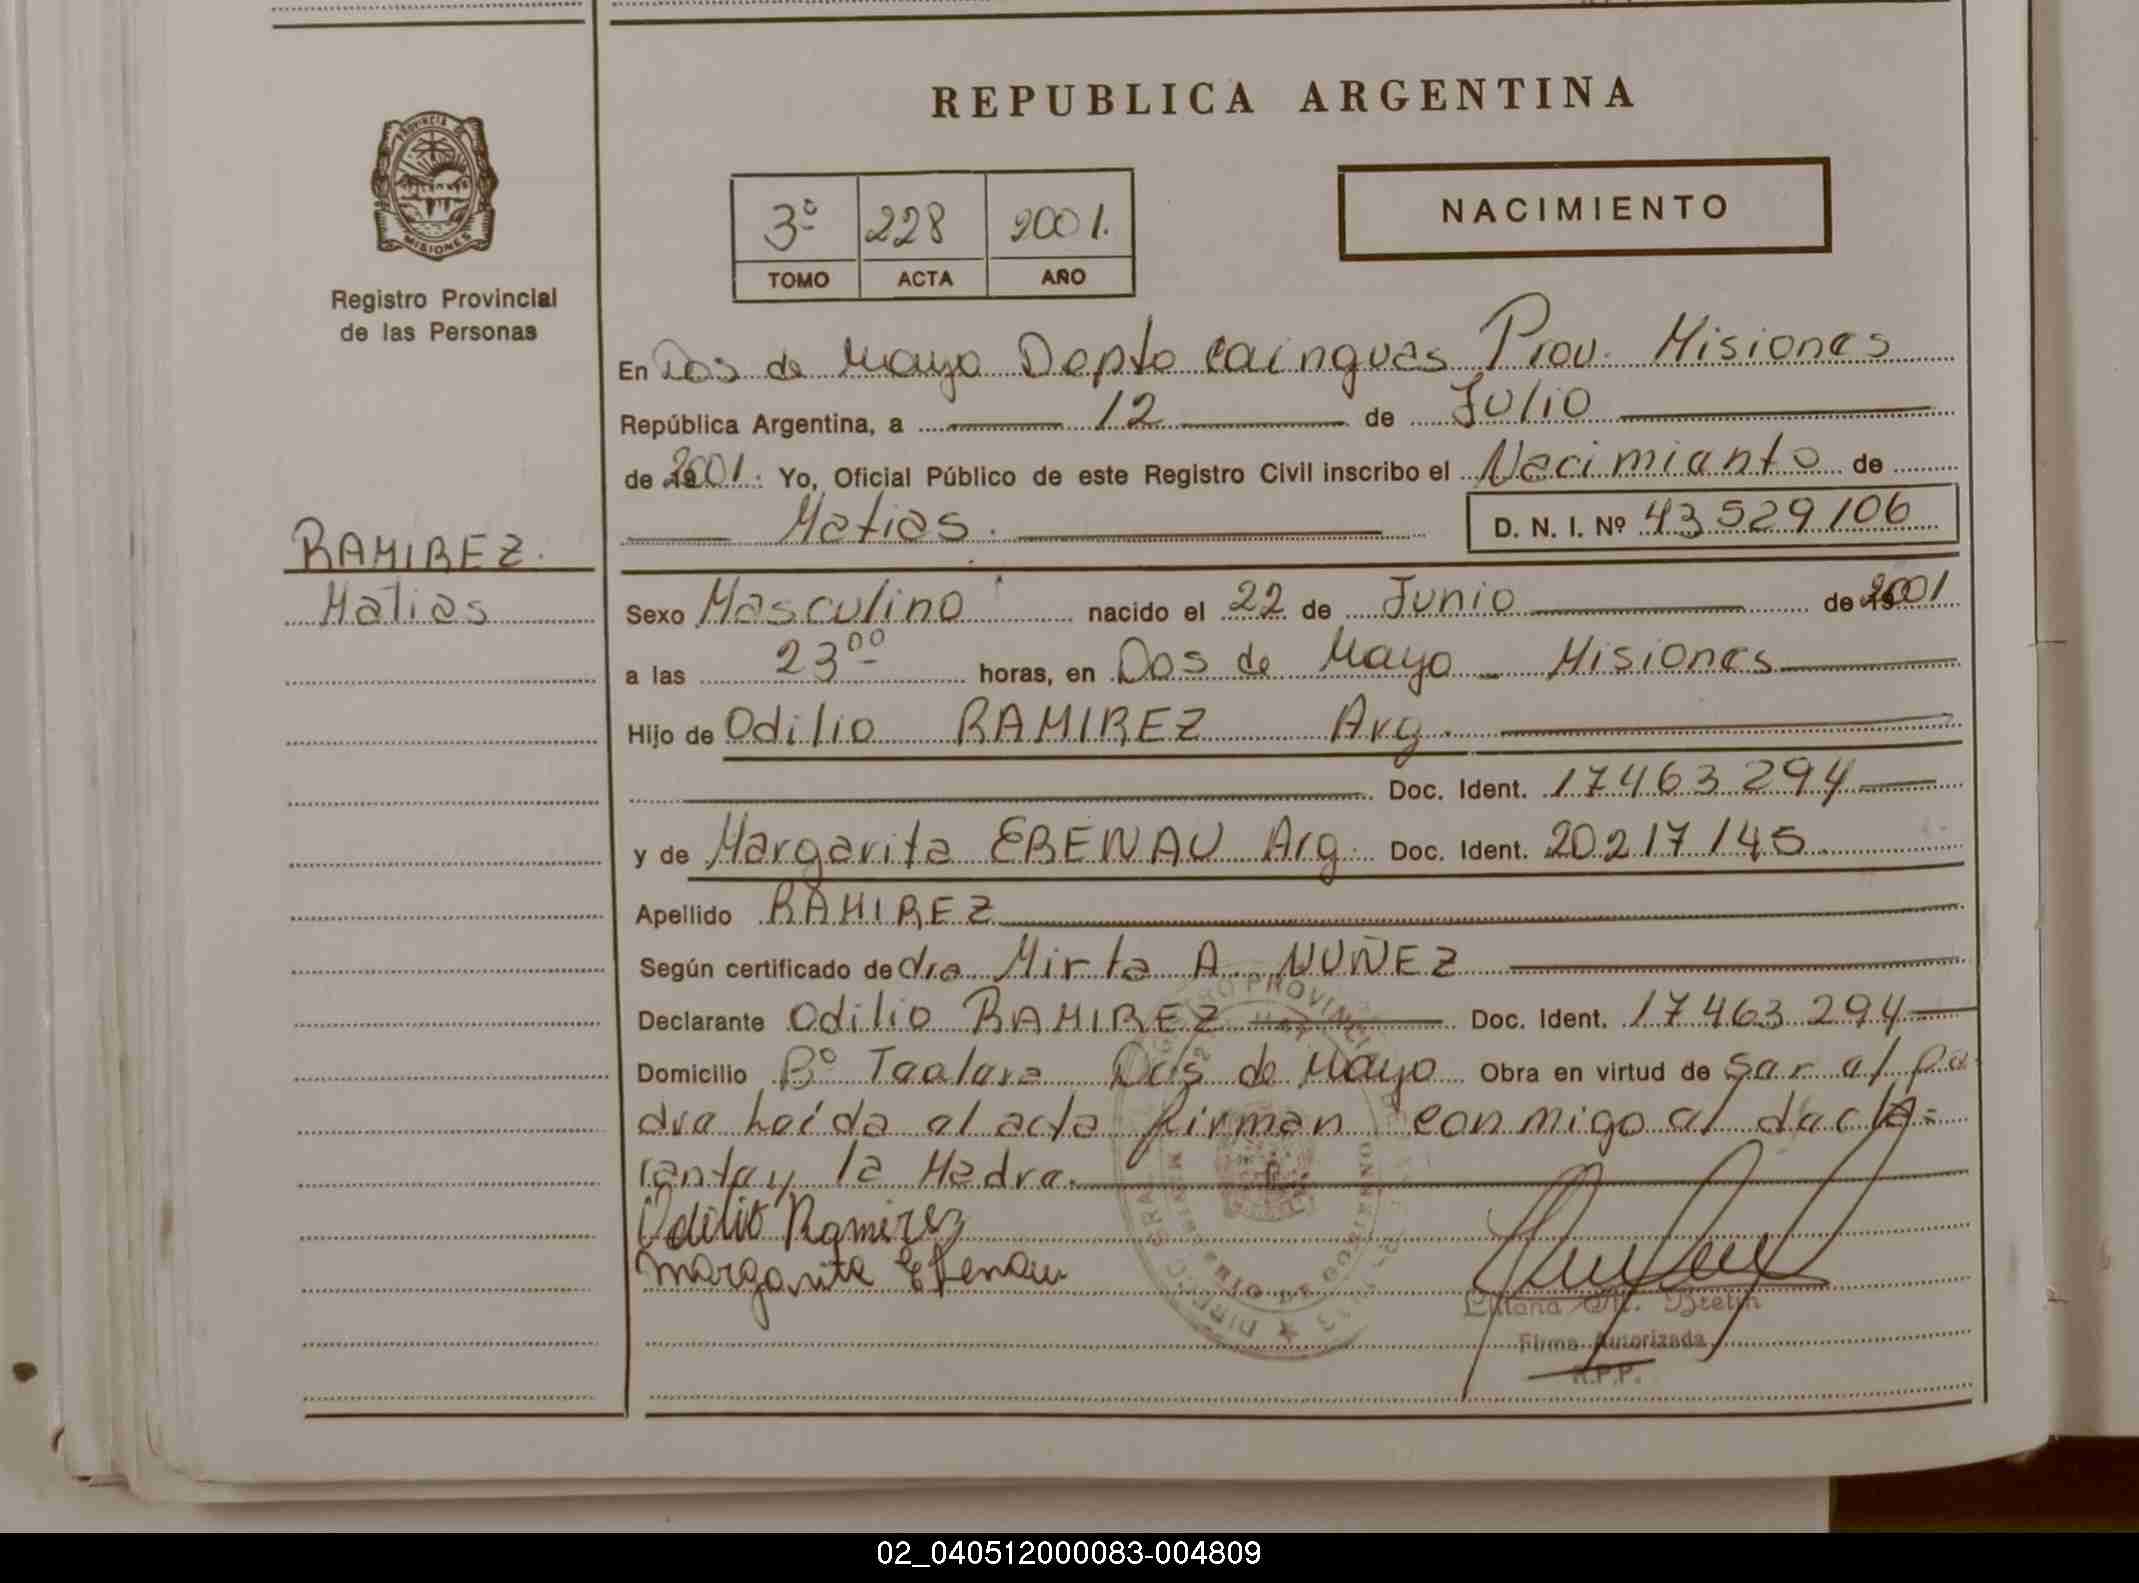 REPUBLICA ARGENTINA
PROVINCIA DE
MISIONES
Registro Provincial
de las Personas
3º 228 2001.
TOMO ACTA AÑO
NACIMIENTO
En Dos de Mayo Depto Cainguas Prov. Misiones
República Argentina, a 12 de Julio
de 2001. Yo, Oficial Público de este Registro Civil inscribo el Nacimiento de
Matias. D. N. I. Nº 43529106
RAMIREZ.
Matias
Sexo Masculino nacido el 22 de Junio de 2001
a las 23ºº horas, en Dos de Mayo - Misiones
Hijo de Odilio RAMIREZ Arg.
Doc. Ident. 17463294
y de Margarita EBENAU Arg. Doc. Ident. 20217145
Apellido RAMIREZ
Según certificado de dra Mirta A. NUÑEZ
Declarante Odilio RAMIREZ Doc. Ident. 17463294
Domicilio Bº Dos de Mayo Obra en virtud de ser el pa
dre leída el acta firman conmigo el decla=
rante y la Madre.
Odilio Ramirez
Margarita Ebenau
Firma Autorizada
R.P.P.
02_040512000083-004809